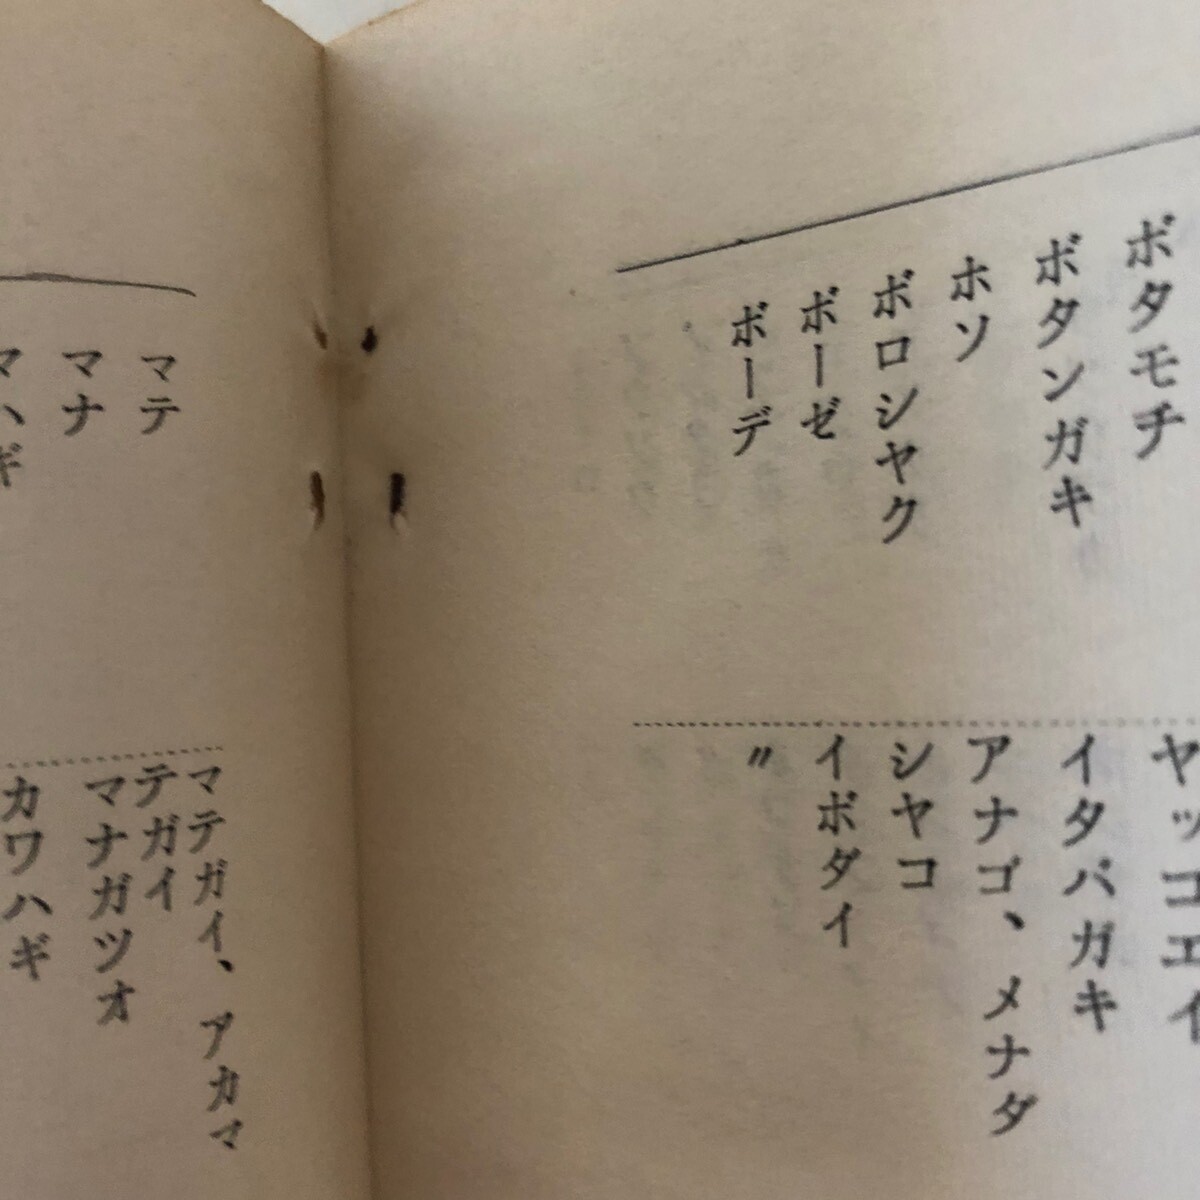 ボタモチ
ボタンガキ
ホソ
ボロシヤク
ボーゼ
ボーデ
ヤッコエイ
イタバガキ
アナゴ、メナダ
シヤコ
イボダイ
〃
マテ
マナ
マハギ
マテガイ、アカマ
テガイ
マナガツオ
カワハギ